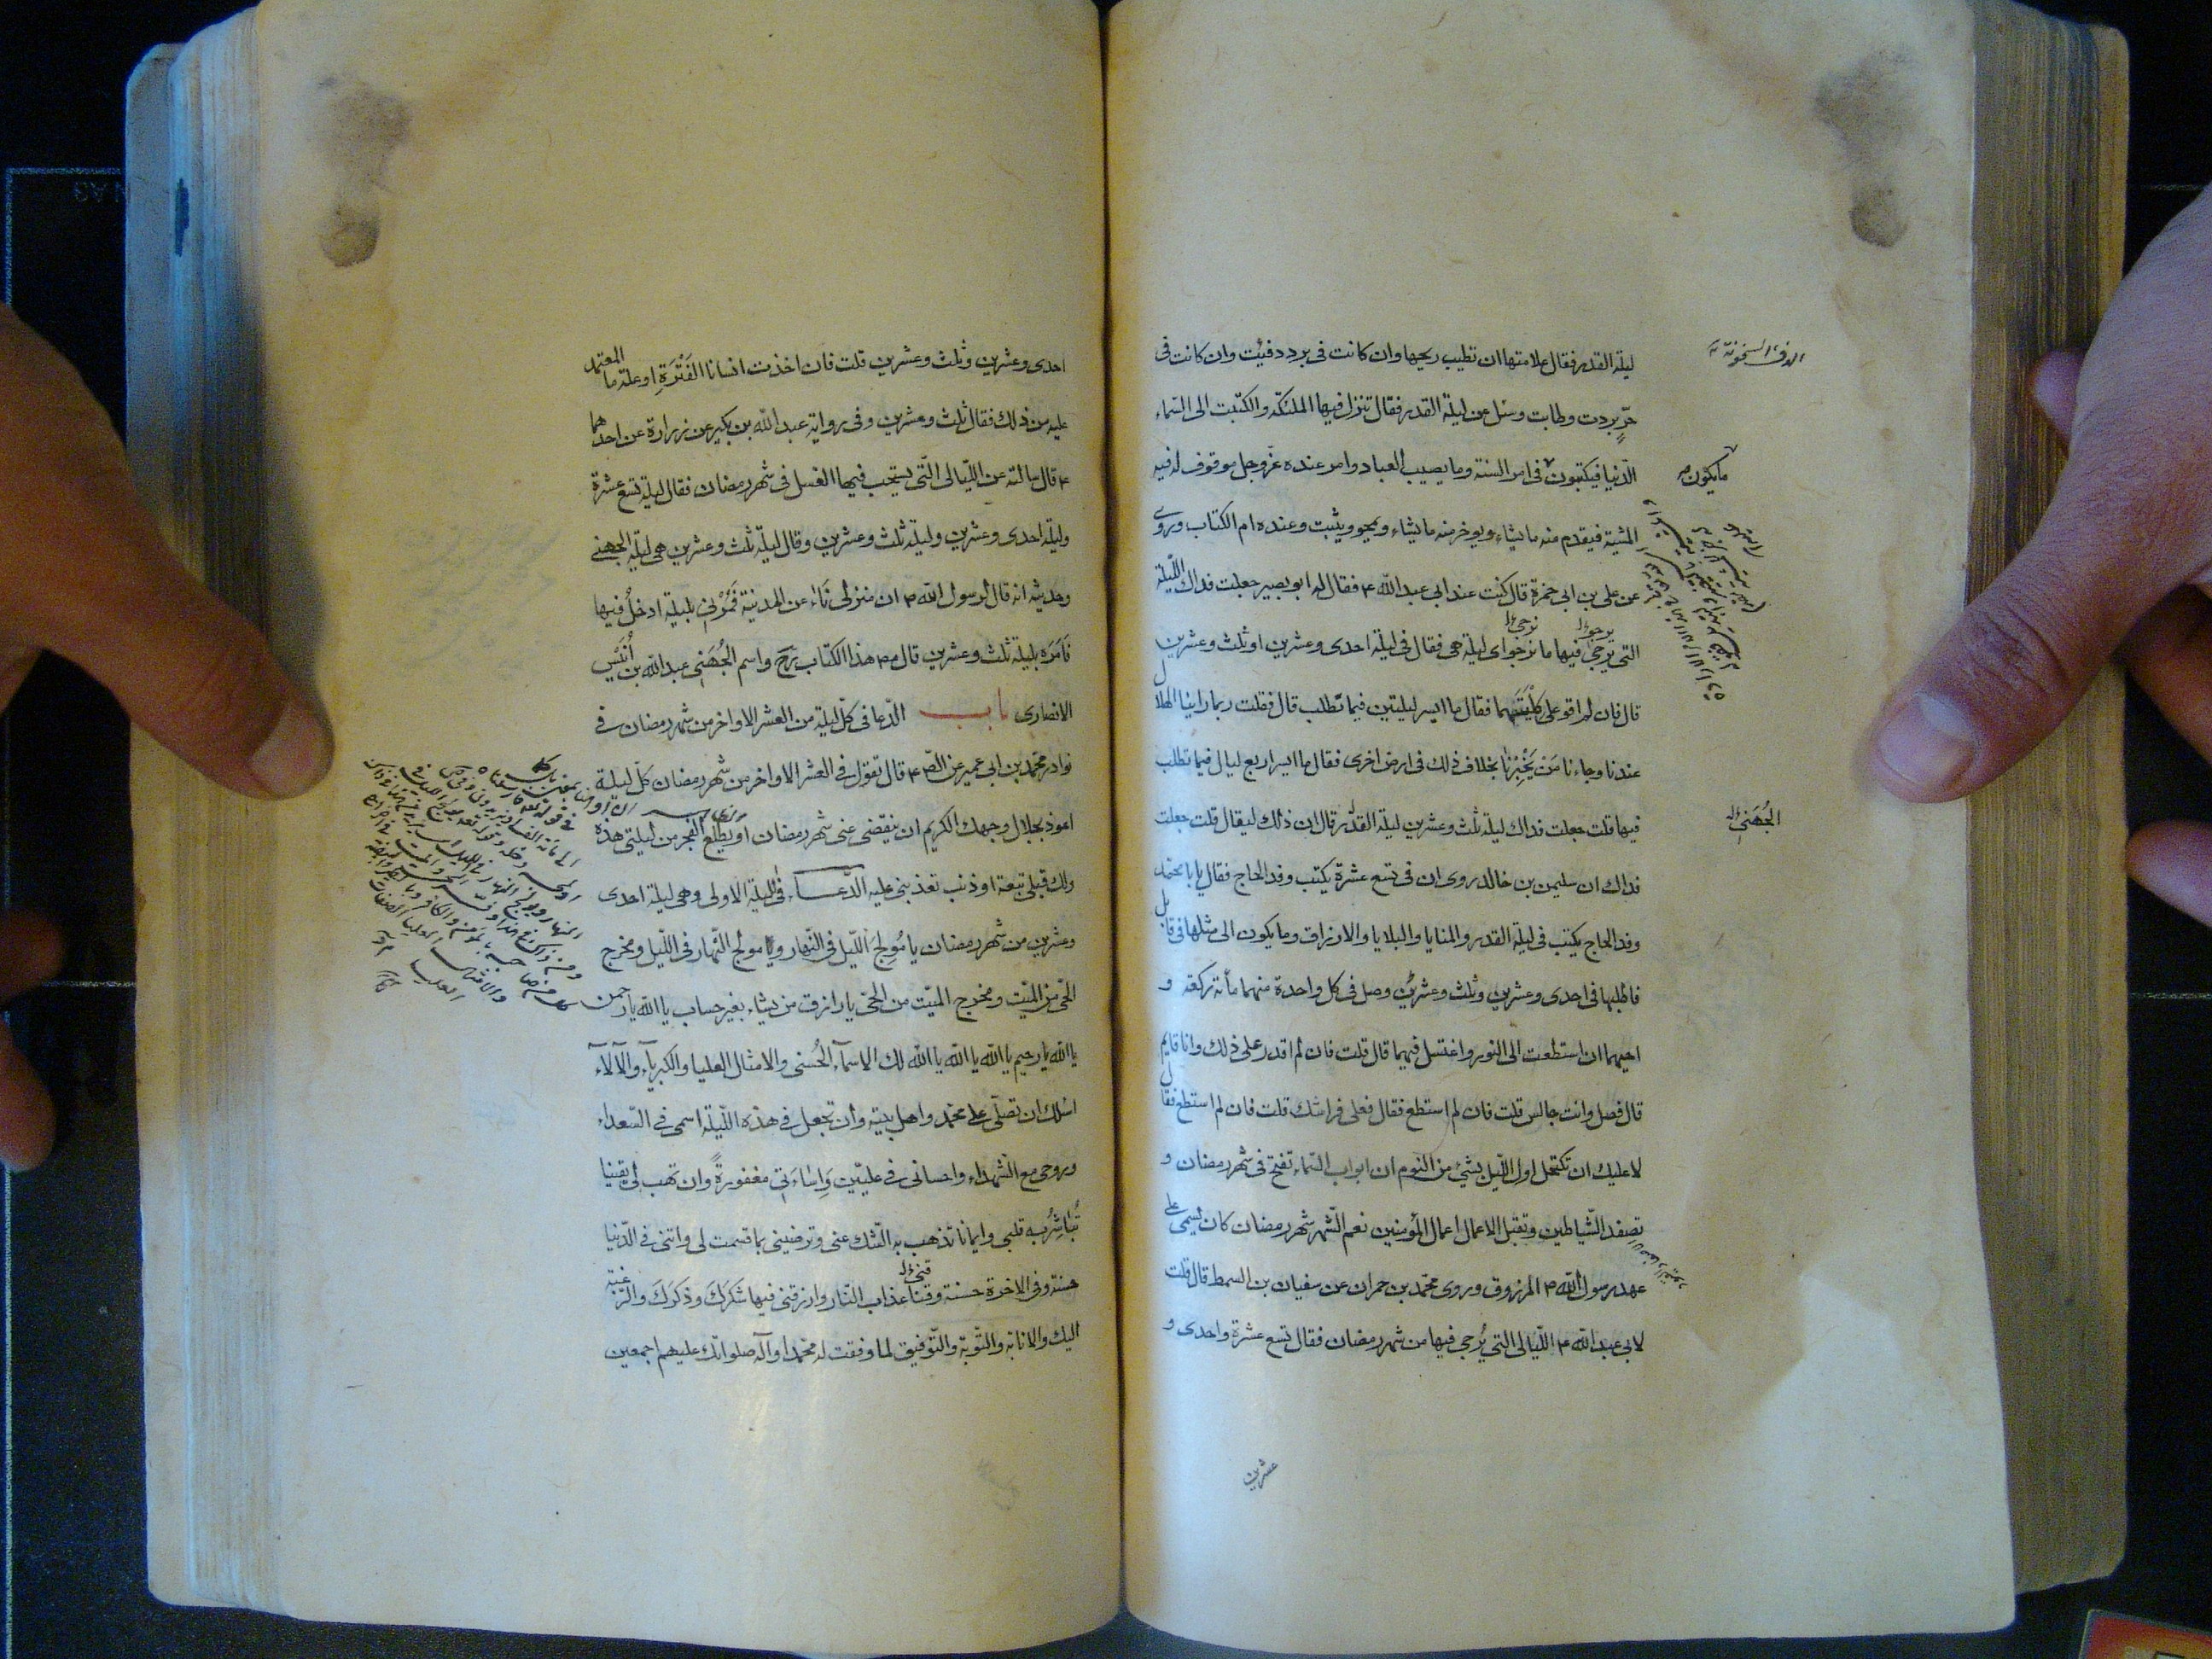 ليلة القدر فقال علامتها ان تطيب ريحها وان كانت فى برد دفيئت وان كانت فى
حرّ بردت وطابت وسئل عن ليلة القدر فقال تنزل فيها الملئكة والكتبة الى السّماء
الدّنيا فيكتبون فى امر السنة وما يصيب العباد وامر عنده عزّ وجل موقوف له فيه
المشية فيقدم منه ما يشاء ويوخر منه ما يشاء ويمحو ويثبت وعنده ام الكتاب وروى
عن على بن ابى حمزة قال كنت عند ابى عبد الله ع فقال له ابو بصير جعلت فداك اللّيلة
التى يرجى فيها ما نرجو اى ليلة هى فقال فى ليلة احدى وعشرين او ثلث وعشرين
قال فان لم اقو على كلتيهما فقال ما ايسر ليلتين فيما تطلب قال فقلت ربما راينا الهلال
عندنا وجاءنا من يخبرنا بخلاف ذلك فى ارض اخرى فقال ما ايسر اربع ليال فيما تطلب
فيها قلت جعلت فداك ليلة ثلث وعشرين ليلة القدر قال ان ذلك ليقال قلت جعلت
فداك ان سليمن بن خالد روى ان فى تسع عشرة يكتب وفد الحاج فقال يا با محمد
وفد الحاج يكتب فى ليلة القدر والمنايا والبلايا والارزاق وما يكون الى مثلها فى قابل
فاطلبها فى احدى وعشرين وثلث وعشرين وصل فى كل واحدة منهما مأئة ركعة و
احيهما ان استطعت الى النور واغتسل فيهما قال قلت فان لم اقدر على ذلك وانا قايم
قال فصل وانت جالس قلت فان لم استطع فقال فعلى فراشك قلت فان لم استطع فقال
لا عليك ان تكتحل اول اللّيل بشىء من النوم ان ابواب السّماء تفتح فى شهر رمضان و
تصفد الشّياطين وتقبل الاعمال اعمال المؤمنين نعم الشّهر شهر رمضان كان يسمى على
عهد رسول الله ص المرزوق وروى محمّد بن حمران عن سفيان بن السمط قال قلت
لابى عبد الله ع اللّيالى التى يُرجى فيها من شهر رمضان فقال تسع عشرة واحدى و
عشرين
ما يكون
الجُهَنىِ
احدى وعشرين وثلث وعشرين قلت فان اخذت انسانا الفَتْرَة او علة ما المعتمد
عليه من ذلك فقال ثلث وعشرين وفى رواية عبد الله بن بكير عن زرارة عن احدهما
ع قال سالته عن اللّيالى الّتى يستحب فيها الغسل فى شهر رمضان فقال ليلة تسع عشرة
وليلة احدى وعشرين وليلة ثلث وعشرين وقال ليلة ثلث وعشرين هى ليلة الجهنى
وحديثه انه قال لرسول الله ص ان منزلى نَاء عن المدينة فَمُرْنى بليلة ادخُلُ فيها
فَاَمَرَه بليلة ثلث وعشرين قال مص هذا الكتاب رَح واسم الجُهَنى عبد الله بن اُنَيْس
الانصارى باب الدّعا فى كلّ ليلة من العشر الاواخر من شهر رمضان فى
نوادر محمّد بن ابى عمير عن الصّ ع قال تقول فى العشر الاواخر من شهر رمضان كلّ ليلة
اعوذ بجلال وجهك الكريم ان ينقضى عنى شهر رمضان او يطلع الفجر من ليلتى هذه
ولك قبلى تبعة او ذنب تعذبنى عليه الدّعاء فى اللّيلة الاولى وهى ليلة احدى
وعشرين من شهر رمضان يا مُولج اللّيل فى النّهار ويا مولج النّهار فى اللّيل ومخرج
الحّى من الميّت ومخرج الميّت من الحىّ يا رازق من يشاء بغير حساب يا الله يا رحمن
يا الله يا رحيم يا الله يا الله يا الله لك الاسماء الحُسنى والامثال العليا والكبرياء والآلاء
اسئلك ان تصلّى على محمّد واهل بيته وان تجعل فى هذه اللّيلة اسمى فى السّعداء
وروحى مع الشّهداء واحسانى فى علّيّين وَاِساءَتى مغفورةً وان تهب لى يقينا
تُباشِرُ به قلبى وايمانا تذهب به الشّك عنى وترضينى بما قسمت لى واتنى فى الدّنيا
حسنة وفى الاخرة حسنة وقنا عذاب النّار وارزقنى فيها شكرَكَ وذكرَكَ والرّغبة
اليك والانابة والتّوبة والتّوفيق لما وفقت له محمّدا وآله صلواتك عليهم اجمعين